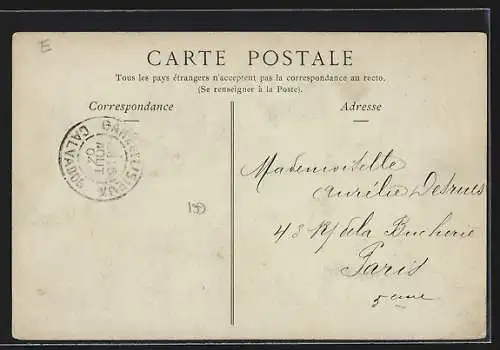 E
CARTE POSTALE
Tous les pays étrangers n'acceptent pas la correspondance au recto.
(Se renseigner à la Poste).
Correspondance
Adresse
GARE DE LISIEUX
AOUT
04
CALVADOS
Mademoiselle
Aurélie Destrues
43 R/ de la Bucherie
Paris
5eme